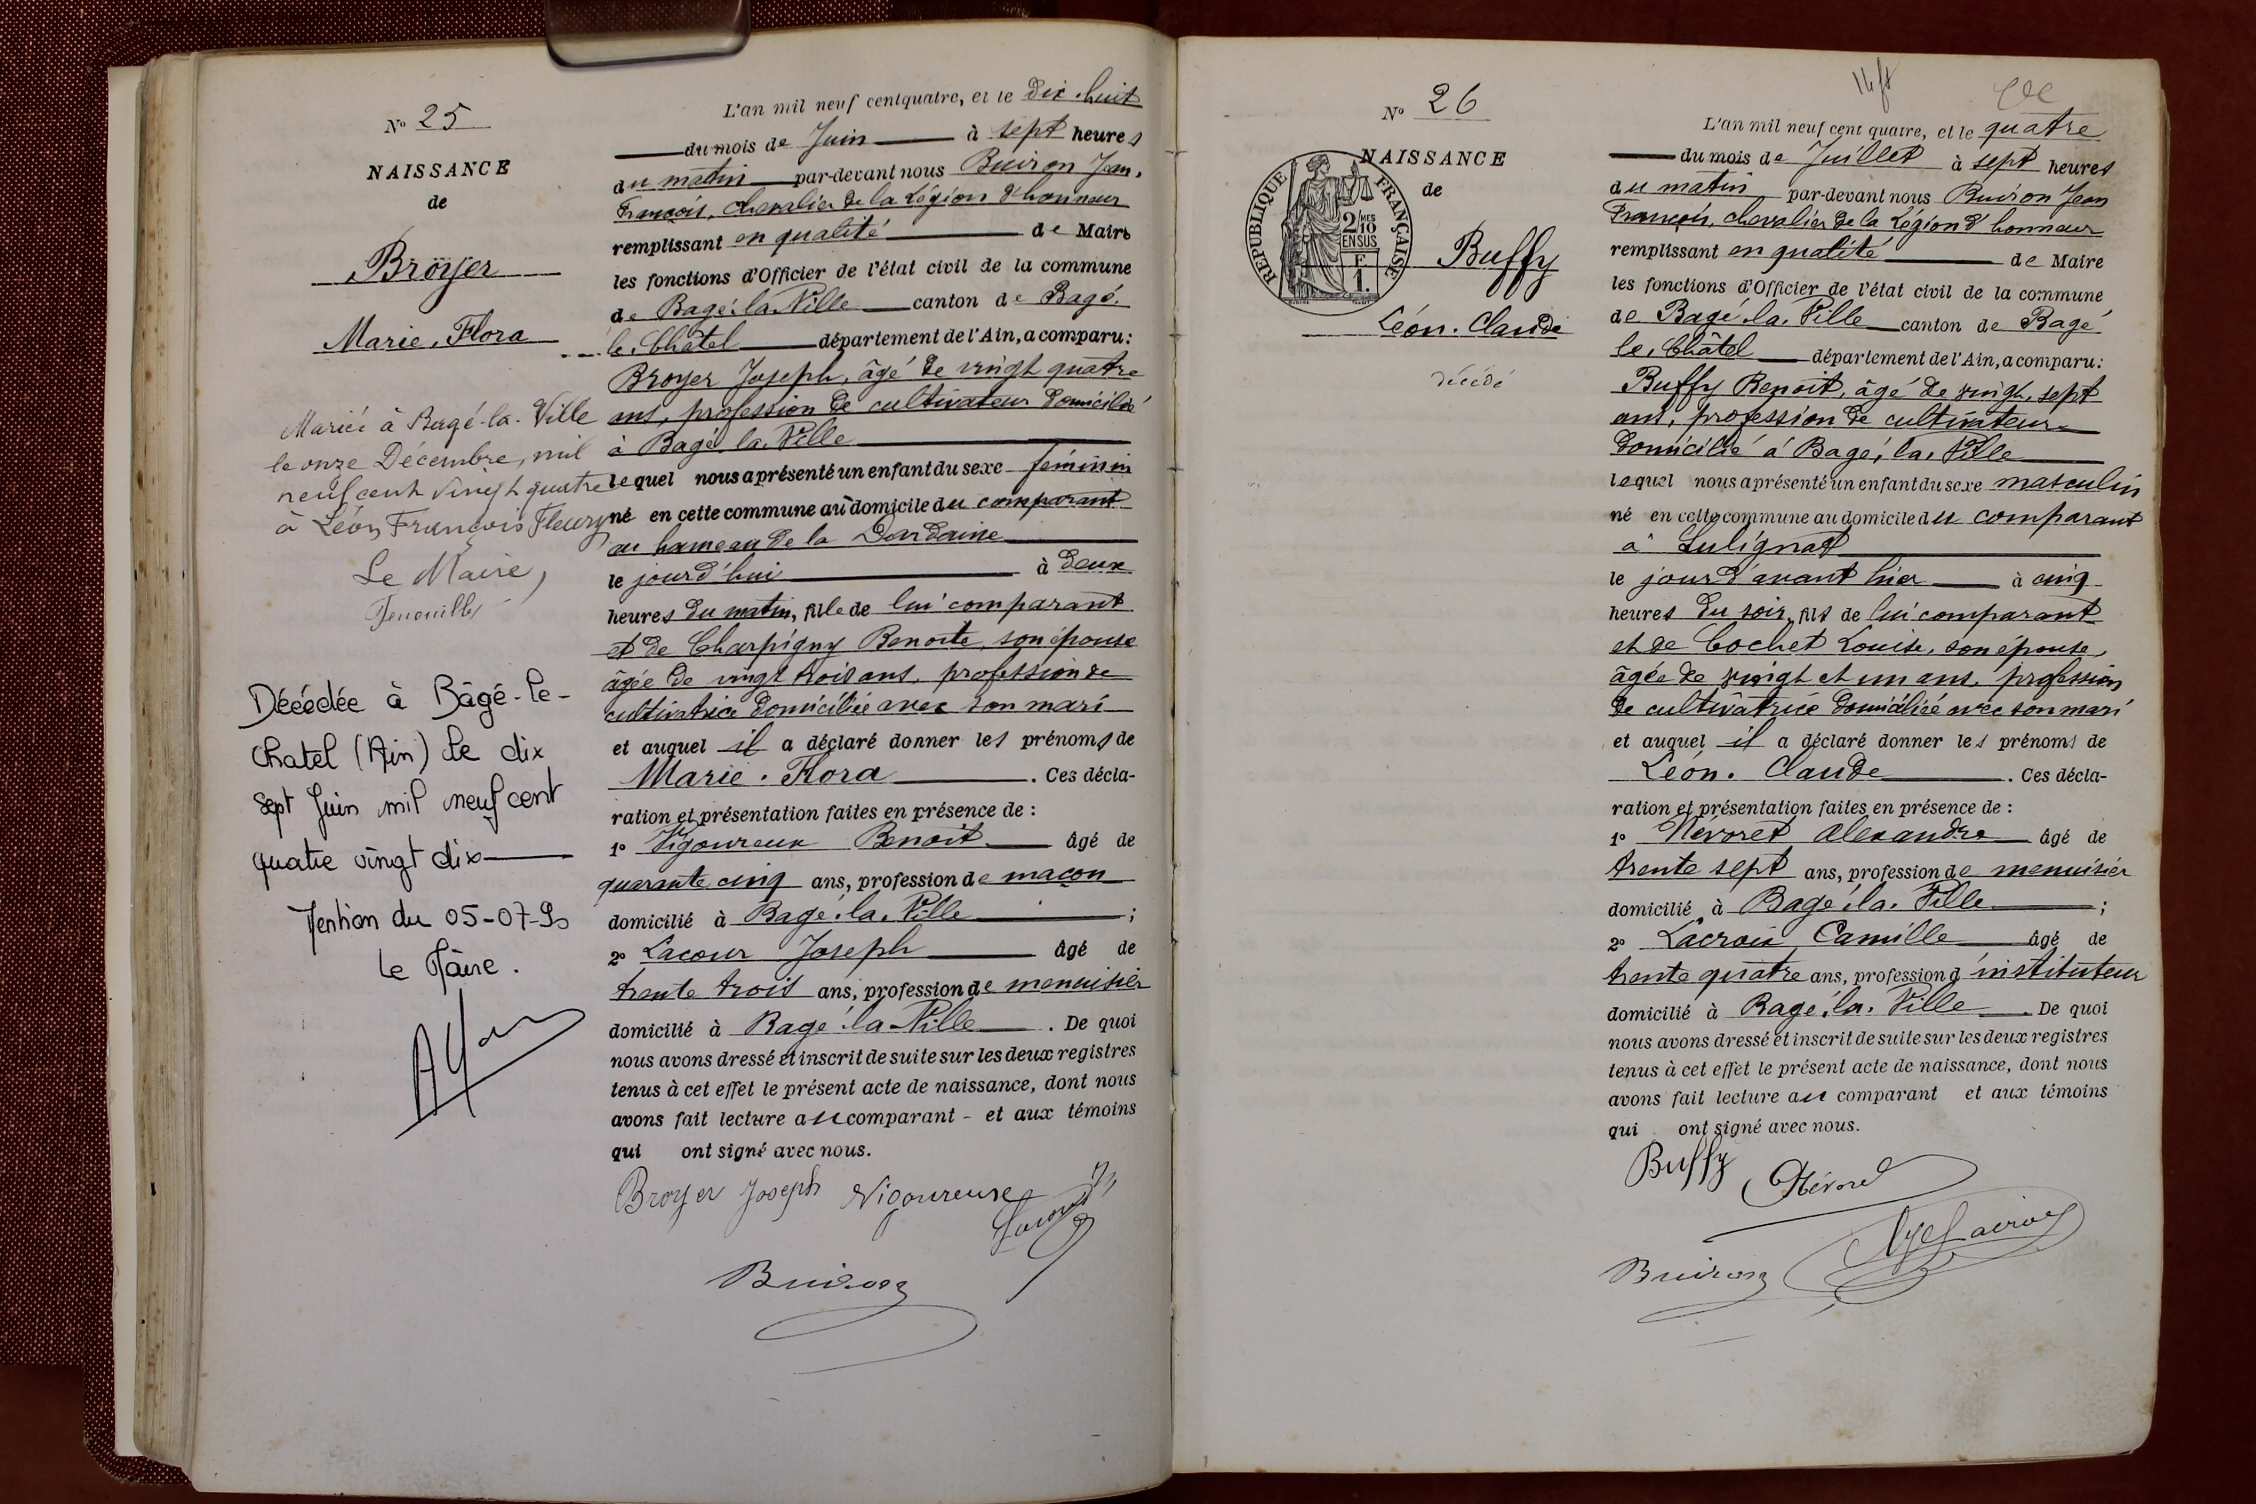 N° 25
NAISSANCE
de
Broyer
Marie. Flora
Mariée à Bagé-la-Ville
le onze Décembre, mil
neuf cent vingt quatre
à Léon François Fleury
Le Maire,
Décédée à Bâgé-le-
Chatel (Ain) le dix
sept juin mil neuf cent
quatre vingt dix
Mention du 05-07-90
Le Maire.
L'an mil neuf cent quatre, et le dix-huit
du mois de Juin à sept heures
du matin par-devant nous Buiron Jean,
François, chevalier de la Légion d'honneur
remplissant en qualité de Maire
les fonctions d'Officier de l'état civil de la commune
de Bagé-la-Ville canton de Bagé-
le-Châtel département de l'Ain, a comparu:
Broyer Joseph, âgé de vingt quatre
ans, profession de cultivateur domicilié
à Bagé-la-Ville
lequel nous a présenté un enfant du sexe féminin
né en cette commune au domicile du comparant
au hameau de la Dardaine
le jourd'hui à deux
heures du matin, fille de lui comparant
et de Charpigny Benoite, son épouse
âgée de vingt trois ans, profession de
cultivatrice domiciliée avec son mari
et auquel il a déclaré donner les prénoms de
Marie. Flora. Ces décla-
ration et présentation faites en présence de :
1° Vigoureux Benoit âgé de
quarante cinq ans, profession de maçon
domicilié à Bagé-la-Ville ;
2° Lacour Joseph âgé de
trente trois ans, profession de menuisier
domicilié à Bagé-la-Ville. De quoi
nous avons dressé et inscrit de suite sur les deux registres
tenus à cet effet le présent acte de naissance, dont nous
avons fait lecture au comparant - et aux témoins
qui ont signé avec nous.
Broyer Joseph Vigoureux
Lacour
Buiron
N° 26
NAISSANCE
de
RÉPUBLIQUE FRANÇAISE
2/10
MES
EN SUS
F
1.
Buffy
Léon. Claude
décédé
L'an mil neuf cent quatre, et le quatre
du mois de Juillet à sept heures
du matin par-devant nous Buiron Jean
François, chevalier de la Légion d'honneur
remplissant en qualité de Maire
les fonctions d'Officier de l'état civil de la commune
de Bagé-la-Ville canton de Bagé
le-Châtel département de l'Ain, a comparu:
Buffy Benoit, âgé de vingt, sept
ans, profession de cultivateur
domicilié à Bagé-la-Ville
lequel nous a présenté un enfant du sexe masculin
né en cette commune au domicile du comparant
à Lulignat
le jour d'avant hier à cinq
heures du soir, fils de lui comparant
et de Cochet Louise, son épouse,
âgée de vingt et un ans, profession
de cultivatrice domiciliée avec son mari
et auquel il a déclaré donner les prénoms de
Léon. Claude. Ces décla-
ration et présentation faites en présence de :
1° Nevoret Alexandre âgé de
trente sept ans, profession de menuisier
domicilié à Bagé-la-Ville ;
2° Lacroix Camille âgé de
trente quatre ans, profession d'instituteur
domicilié à Bagé-la-Ville. De quoi
nous avons dressé et inscrit de suite sur les deux registres
tenus à cet effet le présent acte de naissance, dont nous
avons fait lecture au comparant et aux témoins
qui ont signé avec nous.
Buffy
Lacroix
Buiron